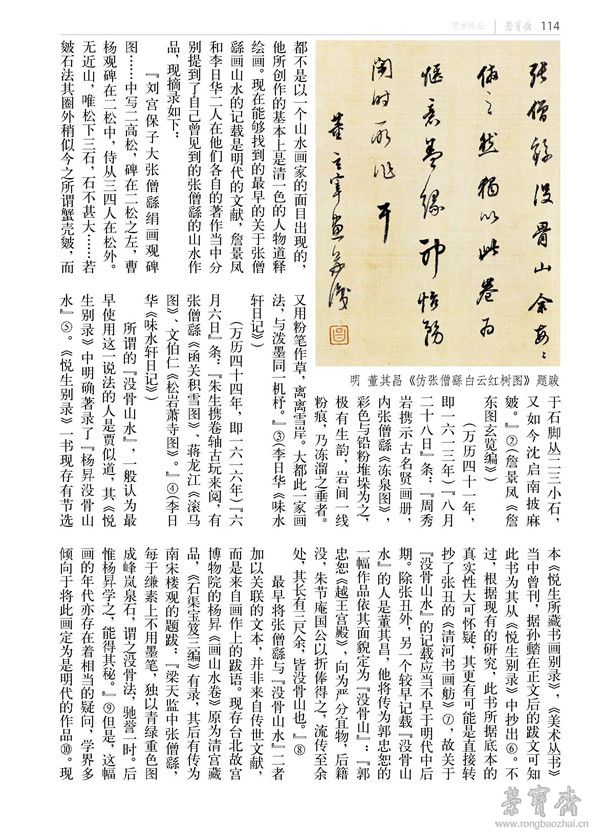 艺术论坛 荣宝斋 114
张僧繇没骨山余每每
仿之然独以此卷为
惬意盖缘神怡务
闲时所作耳
董玄宰画并识
明 董其昌《仿张僧繇白云红树图》题跋
都不是以一个山水画家的面目出现的，
他所创作的基本上是清一色的人物道释
绘画。现在能够找到的最早的关于张僧
繇画山水的记载是明代的文献，詹景凤
和李日华二人在他们各自的著作当中分
别提到了自己曾见到的张僧繇的山水作
品，现摘录如下：
『刘宫保子大张僧繇绢画观碑
图……中写二高松，碑在二松之左，曹
杨观碑在二松中，侍从三四人在松外。
无近山，唯松下三石，石不甚大……若
皴石法其圈外稍似今之所谓蟹壳皴，而
于石脚丛一二三小石，
又如今沈启南披麻
皴。』②(詹景凤《詹
东图玄览编》)
(万历四十一年，
即一六一三年)『八月
二十八日』条：『周秀
岩携示古名贤画册，
内张僧繇《冻泉图》，
彩色与铅粉堆垛为之，
极有生韵，岩间一线
粉痕，乃冻溜之垂者。
又用粉笔作草，离离雪岸。大都此一家画
法，与泼墨同一机杼。』③(李日华《味水
轩日记》)
(万历四十四年，即一六一六年)『六
月六日』条：『朱生携卷轴古玩来阅，有
张僧繇《函关积雪图》、蒋龙江《滚马
图》、文伯仁《松岩萧寺图》。』④(李日
华《味水轩日记》)
所谓的『没骨山水』，一般认为最
早使用这一说法的人是贾似道，其《悦
生别录》中明确著录了『杨昇没骨山
水』⑤。《悦生别录》一书现存有节选
本《悦生所藏书画别录》，《美术丛书》
当中曾刊，据孙䣝在正文后的跋文可知
此书为其从《悦生别录》中抄出⑥。不
过，根据现有的研究，此书所据底本的
真实性大可怀疑，其更有可能是直接转
抄了张丑的《清河书画舫》⑦，故关于
『没骨山水』的记载应当不早于明代中后
期。除张丑外，另一个较早记载『没骨山
水』的人是董其昌，他将传为郭忠恕的
一幅作品依其面貌定为『没骨山』：『郭
忠恕《越王宫殿》，向为严分宜物，后籍
没，朱节庵国公以折俸得之，流传至余
处，其长有三尺余，皆没骨山也。』⑧
最早将张僧繇与『没骨山水』二者
加以关联的文本，并非来自传世文献，
而是来自画作上的跋语。现存台北故宫
博物院的杨昇《画山水卷》原为清宫藏
品，《石渠宝笈三编》有录，其后有传为
南宋楼观的题跋：『梁天监中张僧繇，
每于缣素上不用墨笔，独以青绿重色图
成峰岚泉石，谓之没骨法，驰誉一时。后
惟杨昇学之，能得其秘。』⑨但是，这幅
画的年代亦存在着相当的疑问，学界多
倾向于将此画定为是明代的作品⑩。现
荣宝斋
www.rongbaozhai.cn